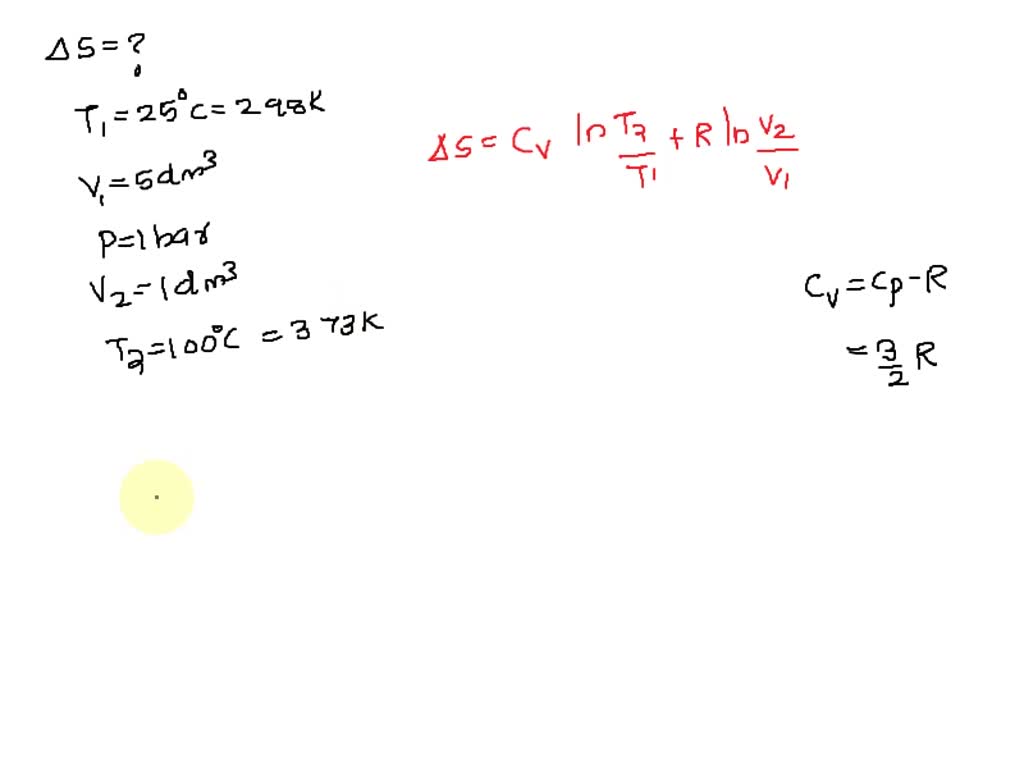 ΔS = ?
T₁ = 25°C = 298K
V₁ = 5dm³
P = 1 bar
V₂ = 1 dm³
T₂ = 100°C = 373K
ΔS = Cv ln T₂/T₁ + R ln V₂/V₁
Cv = Cp - R
= 3/2 R